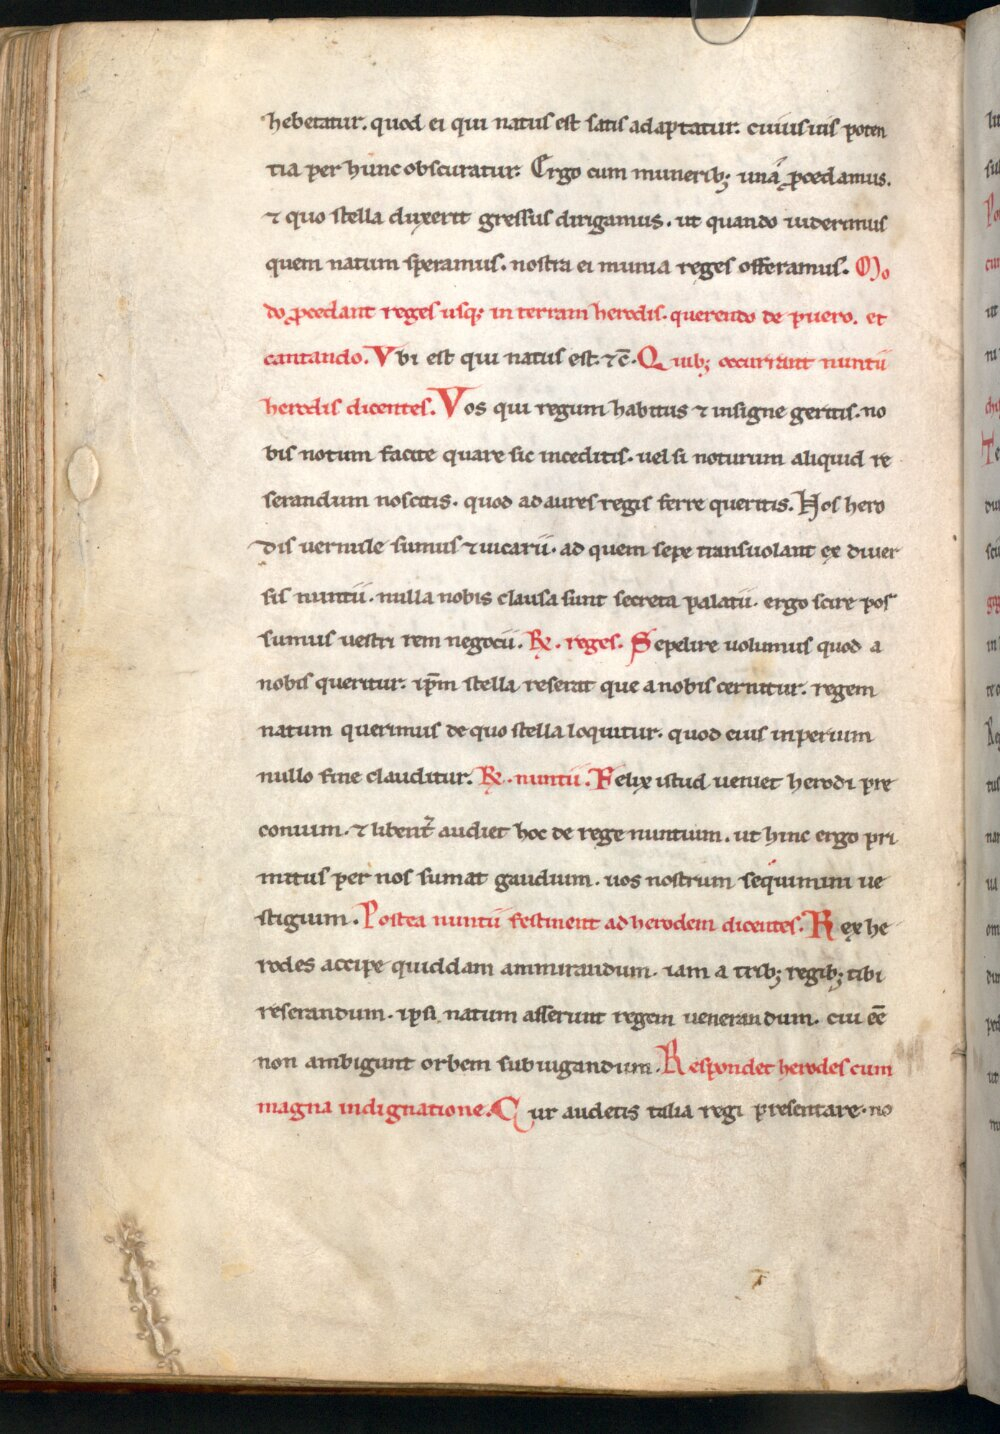 hebetatur. quod ei qui natus est satis adaptatur. cuius uis poten
tia per hunc obscuratur. Ergo cum munerib; una ꝓcedamus.
⁊ quo stella duxerit gressus dirigamus. ut quando uiderimus
quem natum speramus. nostra ei munia reges offeramus. Mo
do ꝓcedant reges usq; in terram herodis. querendo de puero. et
cantando. Vbi est qui natus est. ⁊c̄. Quib; occurrant nuntii
herodis dicentes. Vos qui regum habitus ⁊ insigne geritis. no
bis notum facite quare sic inceditis. uel si noturum aliquid re
serandum noscitis. quod ad aures regis ferre queritis. Nos hero
dis uernule sumus ⁊ uicarii. ad quem sepe transuolant ex diuer
sis nuntii. nulla nobis clausa sunt secreta palatii. ergo scire pos
sumus uestri rem negocii. R̄. reges. Sepelire uolumus quod a
nobis queritur. ip̄m stella reserat que a nobis cernitur. regem
natum querimus de quo stella loquitur. quod eius inperium
nullo fine clauditur. R̄. nuntii. Felix istud ueniet herodi pre
conium. ⁊ libent̄ audiet hoc de rege nuntium. ut hinc ergo pri
mitus per nos sumat gaudium. uos nostrum sequimini ue
stigium. Postea nuntii festinent ad herodem dicentes. Rex he
rodes accipe quiddam ammirandum. iam a trib; regib; tibi
reserandum. ipsi natum asserunt regem uenerandum. cui eē
non ambigunt orbem subiugandum. Respondet herodes cum
magna indignatione. Cur audetis talia regi presentare. no